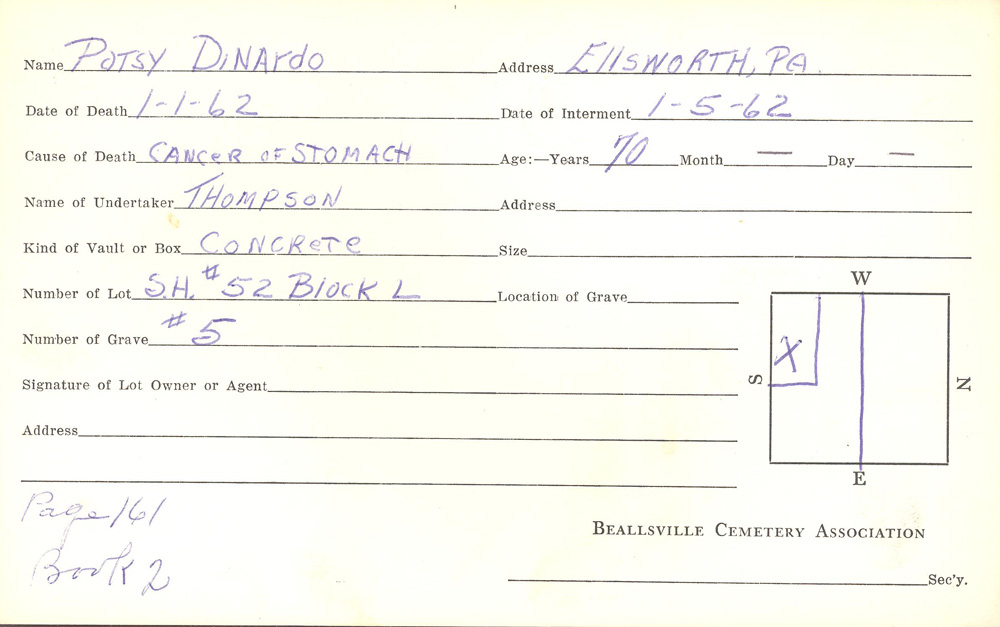 Name Potsy DiNardo Address Ellsworth, PA.
Date of Death 1-1-62 Date of Interment 1-5-62
Cause of Death Cancer of Stomach Age:—Years 70 Month — Day —
Name of Undertaker Thompson Address
Kind of Vault or Box Concrete Size
Number of Lot S.H. #52 Block L Location of Grave
Number of Grave #5
Signature of Lot Owner or Agent
Address
W
X
S
N
E
Page 161
Book 2
Beallsville Cemetery Association
Sec'y.